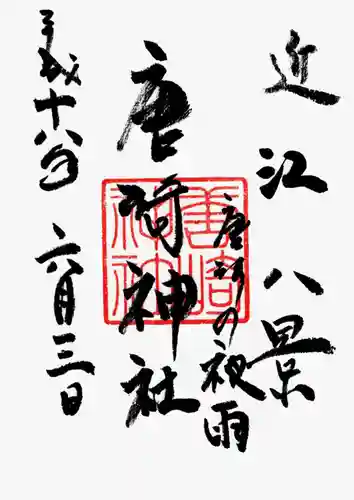 近江八景
唐崎の夜雨
唐崎神社
平成十八年 六月三日